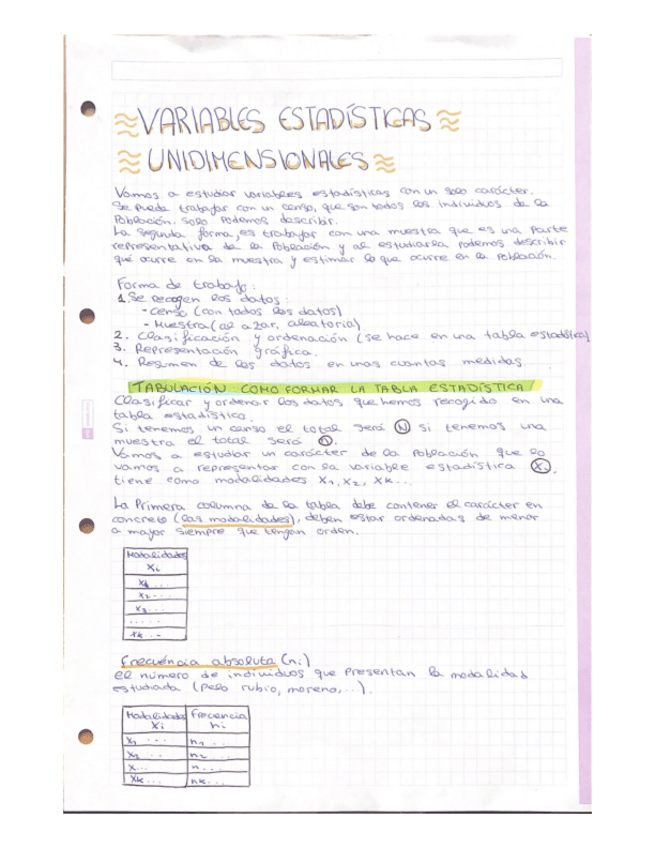 VARIABLES ESTADÍSTICAS
UNIDIMENSIONALES
Vamos a estudiar variables estadísticas con un solo carácter.
Se puede trabajar con un censo, que son todos los individuos de la
Población. Solo Podemos describir.
La segunda forma, es trabajar con una muestra que es una parte
representativa de la Población y al estudiarla podemos describir
qué ocurre en la muestra y estimar lo que ocurre en la población.
Forma de trabajo:
1. Se recogen los datos:
- Censo (con todos los datos)
- Muestra (al azar, aleatoria)
2. Clasificación y ordenación (se hace en una tabla estadística)
3. Representación gráfica.
4. Resumen de los datos en unas cuantas medidas.
TABULACIÓN COMO FORMAR LA TABLA ESTADÍSTICA
Clasificar y ordenar los datos que hemos recogido en una
tabla estadístico.
Si tenemos un censo el total será N si tenemos una
muestra el total será n.
Vamos a estudiar un carácter de la Población que lo
vamos a representar con la variable estadística Xi.
tiene como modalidades X1, X2, Xk...
La Primera columna de la tabla debe contener el carácter en
concreto (las modalidades), deben estar ordenadas de menor
a mayor siempre que tengan orden.
Modalidades
Xi
X1...
X2...
X3...
.....
Xk...
Frecuencia absoluta (ni)
el número de individuos que presentan la modalidad
estudiada (pelo rubio, moreno,...).
Modalidades Frecuencia
Xi ni
X1 ... n1 ...
X2 ... n2 ...
X... n...
Xk... nk...